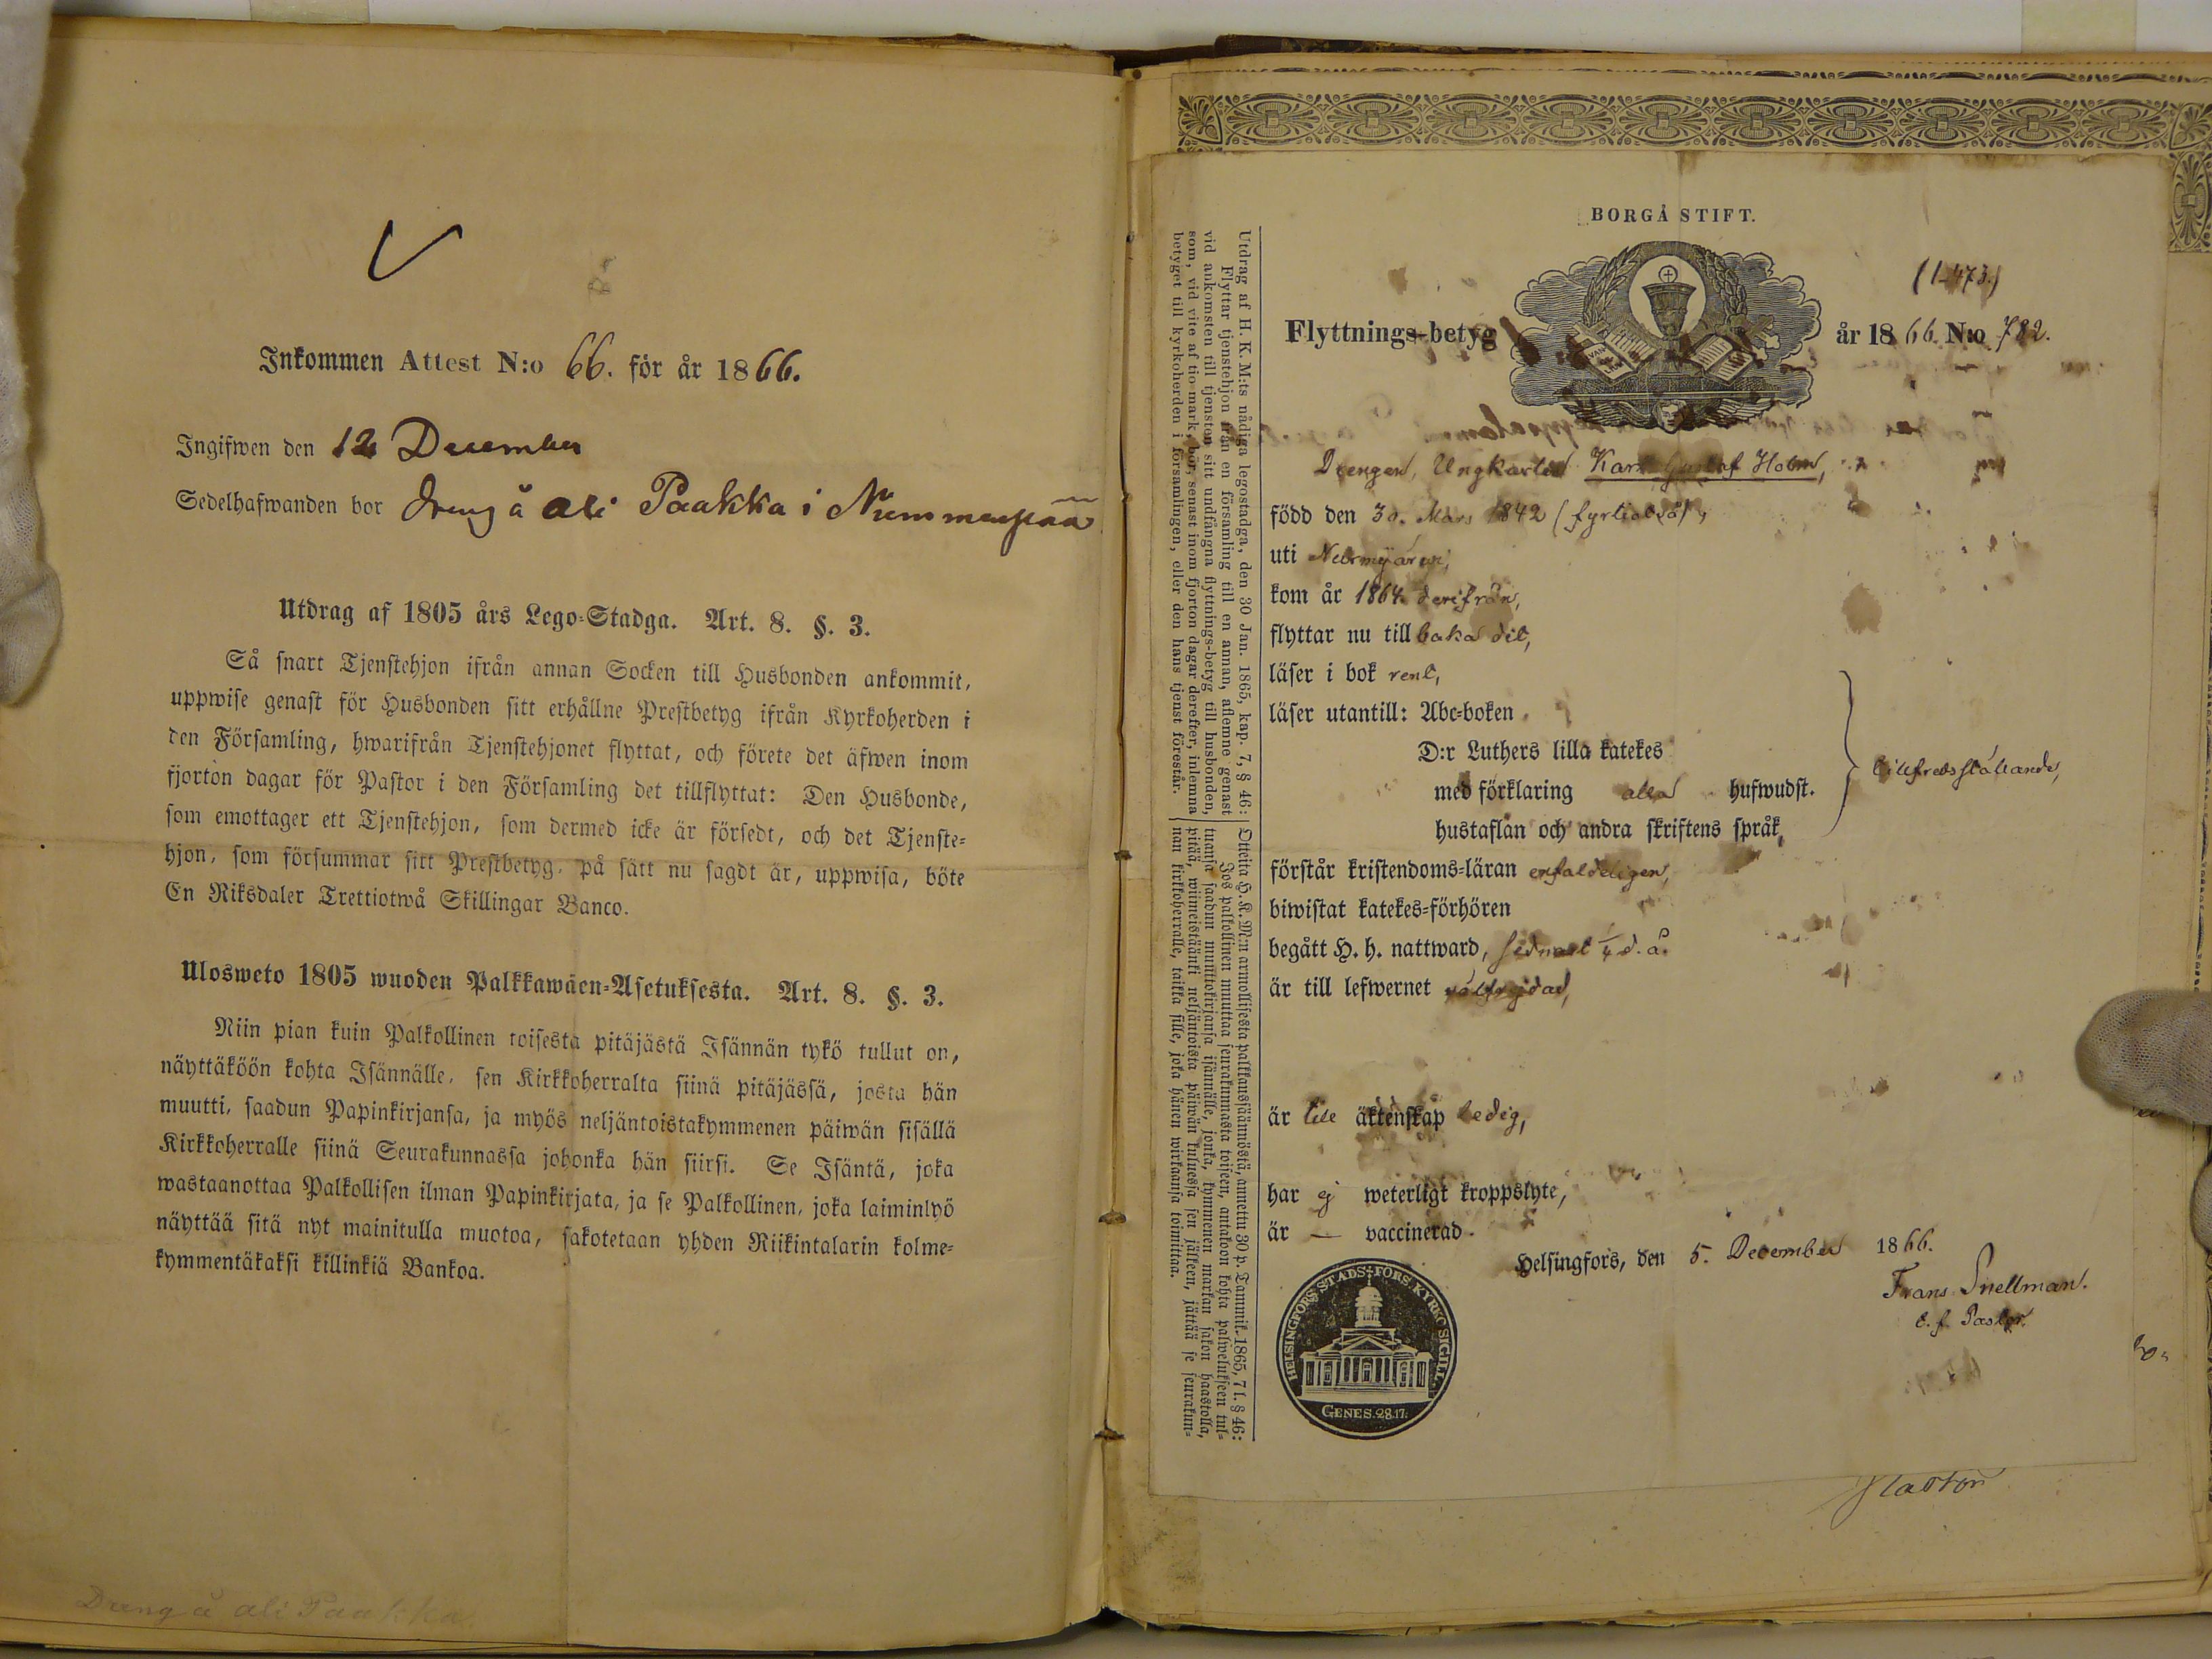 Inkommen Attest N:o 66. för år 1866.
Ingifwen den 12 December
Sedelhafwanden bor dreng å Ali Paakka i Nummenpää
Utdrag af 1805 års Lego-Stadga. Art. 8. §. 3.
Så snart Tjenstehjon ifrån annan Socken till Husbonden ankommit,
uppwise genast för Husbonden sitt erhållne Prestbetyg ifrån Kyrkoherden i
den Församling, hwarifrån Tjenstehjonet flyttat, och förete det äfwen inom
fjorton dagar för Pastor i den Församling det tillflyttat: Den Husbonde,
som emottager ett Tjenstehjon, som dermed icke är försedt, och det Tjenste-
hjon, som försummar sitt Prestbetyg, på sätt nu sagdt är, uppwisa, böte
En Riksdaler Trettiotwå Skillingar Banco.
Ulosweto 1805 wuoden Palkkawäen-Asetuksesta. Art. 8. §. 3.
Niin pian kuin Palkollinen toisesta pitäjästä Isännän tykö tullut on,
näyttäköön kohta Isännälle, sen Kirkkoherralta siinä pitäjässä, josta hän
muutti, saadun Papinkirjansa, ja myös neljäntoistakymmenen päiwän sisällä
Kirkkoherralle siinä Seurakunnassa johonka hän siirsi. Se Isäntä, joka
wastaanottaa Palkollisen ilman Papinkirjata, ja se Palkollinen, joka laiminlyö
näyttää sitä nyt mainitulla muotoa, sakotetaan yhden Riikintalarin kolme-
kymmentäkaksi killinkiä Bankoa.
Dreng å ali Paakka
Utdrag af H. K. M:ts nådiga legostadga, den 30 Jan. 1865, kap. 7, § 46:
Flyttar tjenstehjon från en församling till en annan, aflemne genast
vid ankomsten till tjensten sitt undfångna flyttnings-betyg till husbonden,
som, vid vite af tio mark, bör, senast inom fjorton dagar derefter, inlemna
betyget till kyrkoherden i församlingen, eller den hans tjenst förestår.
Otteita H. K. M:n armollisesta palkkaussäännöstä, annettu 30 p. Tammik. 1865, 7 l. § 46:
Jos palkollinen muuttaa seurakunnasta toiseen, antakoon kohta palwelukseen tul-
tuansa saadun muuttokirjansa isännälle, jonka, kymmenen markan sakon haastolla,
pitää, wiimeistäänki neljäntoista päiwän kuluessa sen jälkeen, jättää se seurakun-
nan kirkkoherralle, taikka sille, joka hänen wirkaansa toimittaa.
BORGÅ STIFT.
(1473.)
Flyttnings-betyg år 1866. N:o 782.
Drengen, Ungkarlen Karl Gustaf Holm,
född den 30. Mars 1842 (fyrtiotvå),
uti Nurmijärvi,
kom år 1864 derifrån,
flyttar nu tillbaka dit,
läser i bok rent,
läser utantill: Abc-boken
D:r Luthers lilla katekes
med förklaring alla hufwudst.
hustaflan och andra skriftens språk,
tillfredsställande,
förstår kristendoms-läran enfaldeligen,
biwistat katekes-förhören
begått H. h. nattward, sednast d. å.
är till lefwernet välfrejdad,
är till äktenskap ledig,
har ej weterligt kroppslyte,
är — vaccinerad.
Helsingfors, den 5. December 1866.
Frans Snellman.
t. f. Pastor.
HELSINGFORS STADS FÖRS. KYRKO SIGILL.
GENES. 28.17.
Pastor